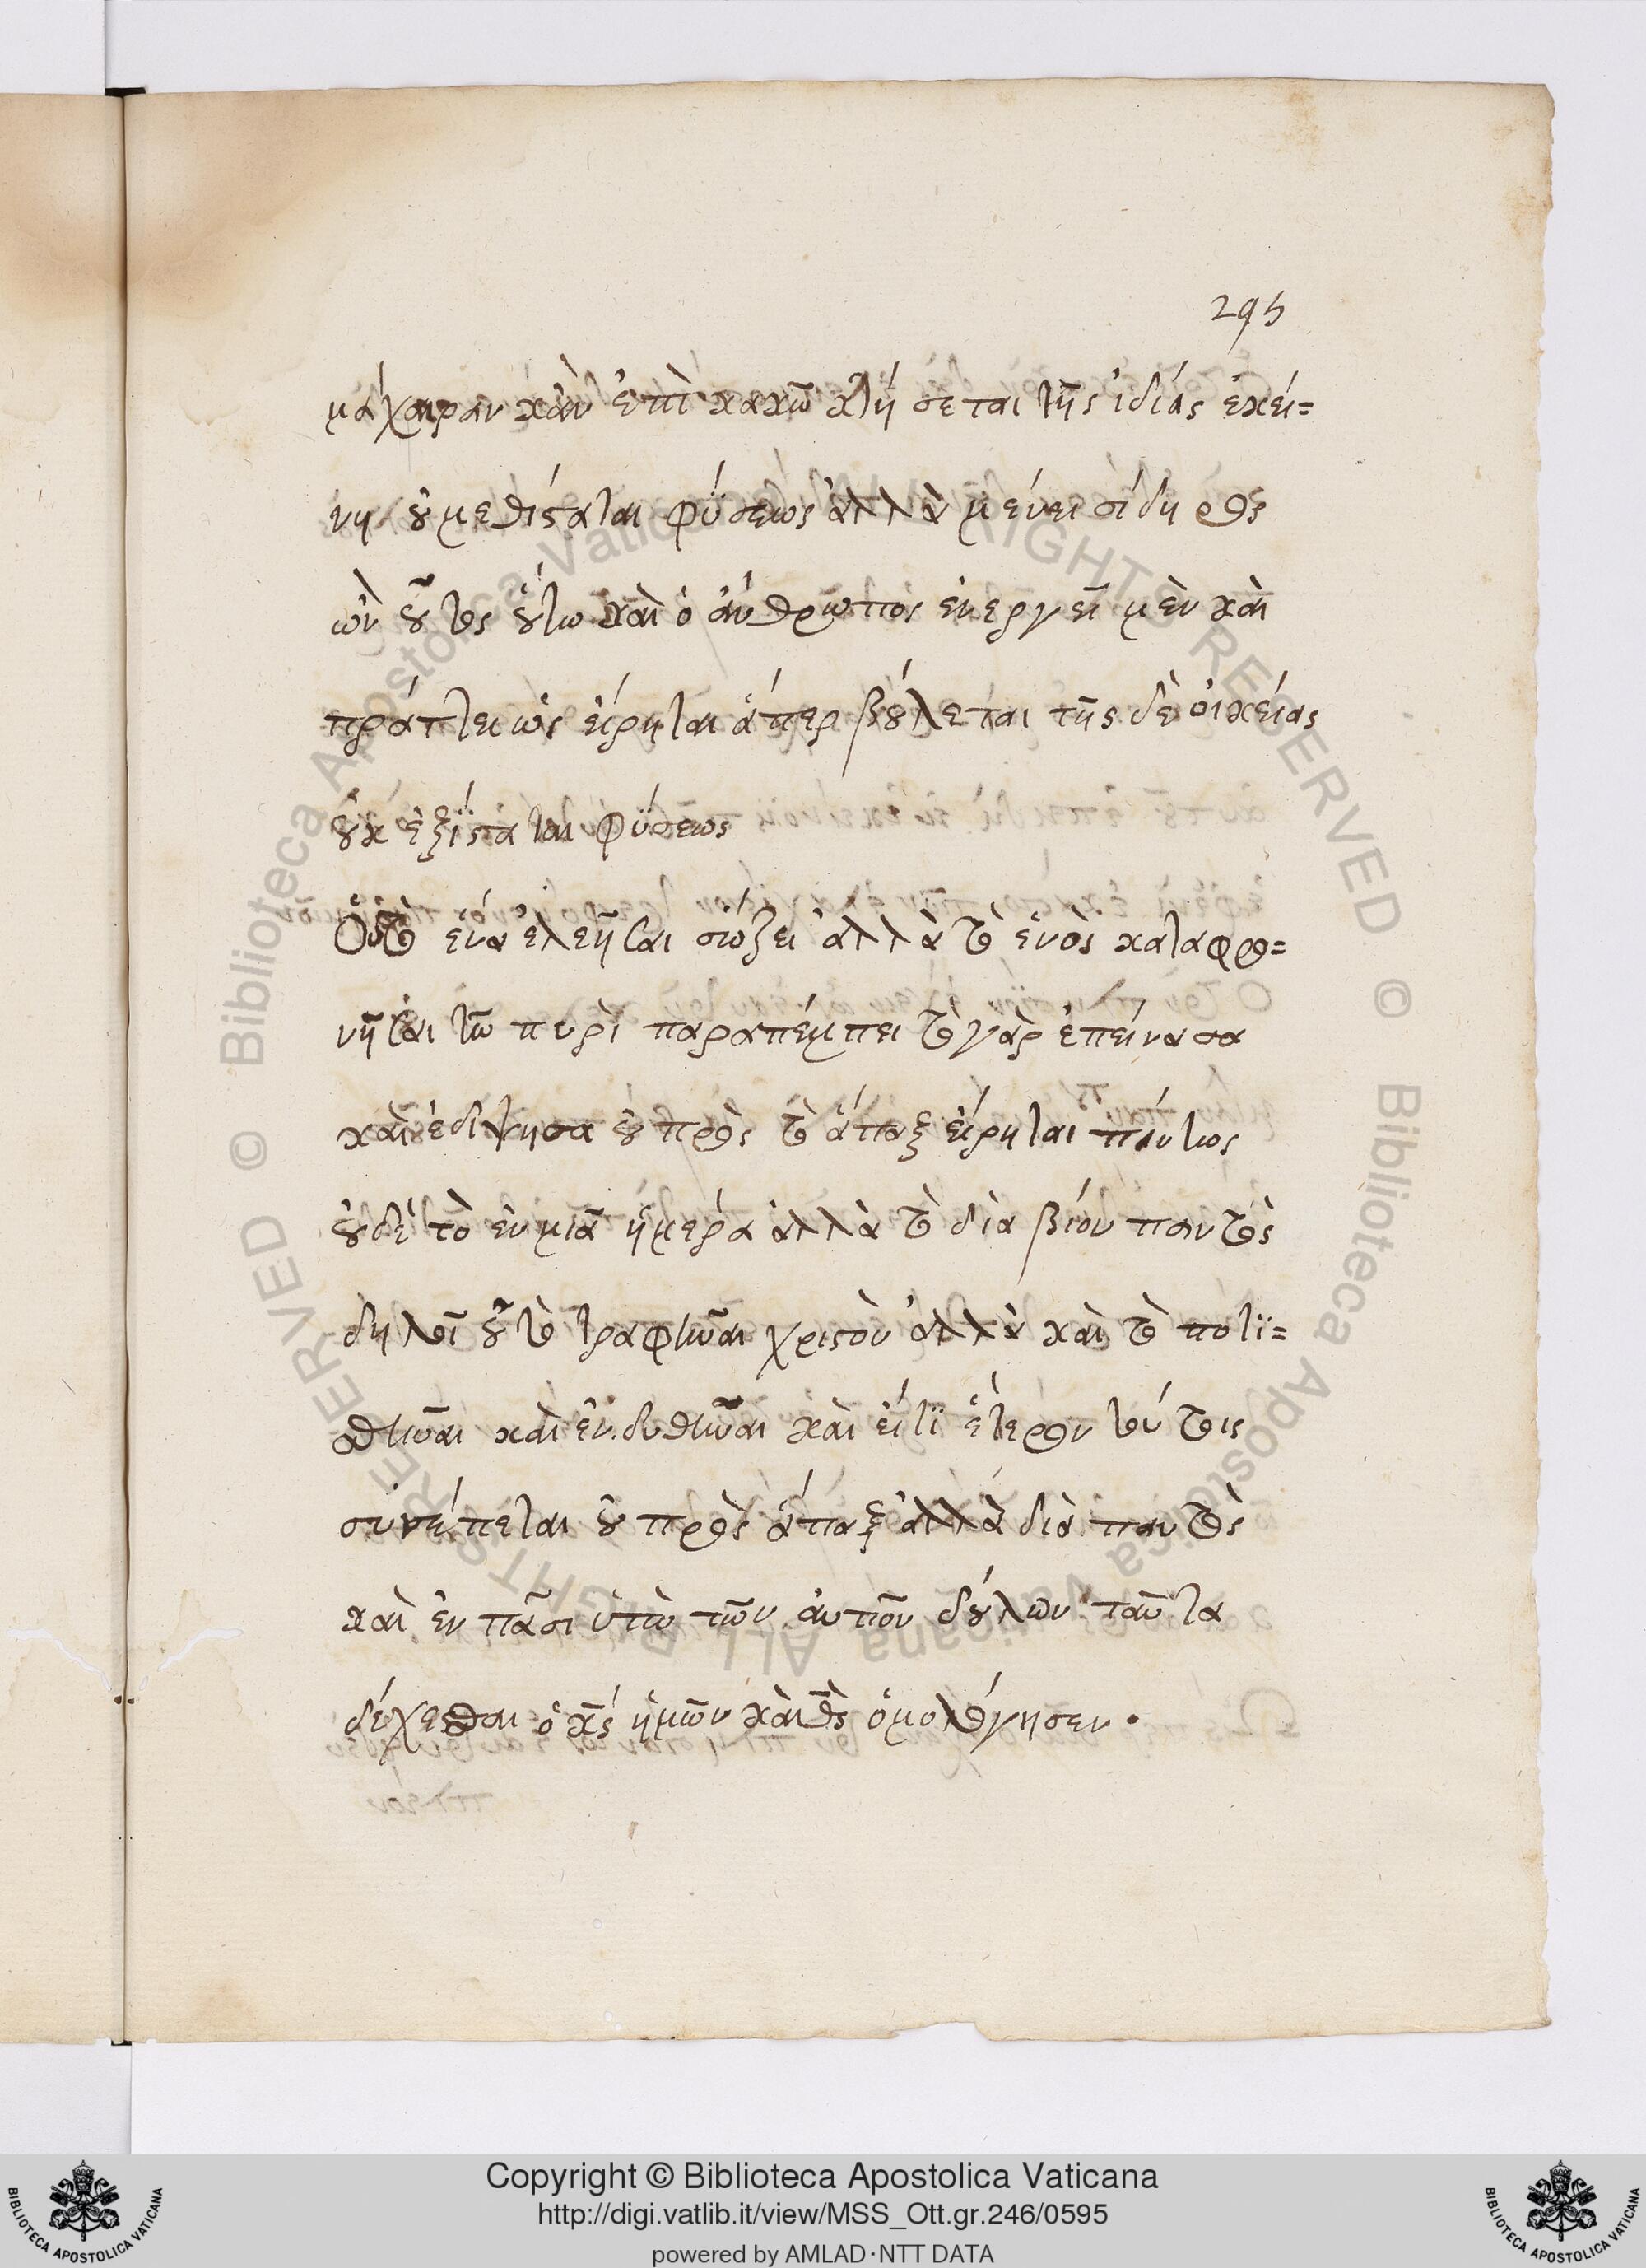 295
μάχαιραν κἂν ἐπὶ κακῶ κλήσεται τῆς ἰδίας ἐκεί=
νη οὐ μεθίσταται φύσεως ἀλλὰ μένει σίδηρος
ὢν οὗτος οὕτω καὶ ὁ ἄνθρωπος ἐνεργεῖ μὲν καὶ
πράττει ὡς εἴρηται ἅπερ βούλεται τῆς δὲ οἰκείας
οὐκ ἐξΐσταται φύσεως
Οὐ τὸ ἕνα ἐλεῆσαι σώζει ἀλλὰ τὸ ἑνὸς καταφρο=
νῆσαι τῶ πυρὶ παραπέμπει τὸ γὰρ ἐπείνασα
καὶ ἐδίψησα οὐ πρὸς τὸ ἅπαξ εἴρηται πάντως
οὐδὲ τὸ ἐν μιᾶ ἡμέρα ἀλλὰ τὸ διὰ βίου παντὸς
δηλοῖ οὕτω τραφῆναι χριστὸν ἀλλὰ καὶ τὸ ποτϊ=
σθῆναι καὶ ἐνδυθῆναι καὶ εἴ τϊ ἕτερον τούτοις
συνέπεται οὐ πρὸς ἅπαξ ἀλλὰ διὰ παντὸς
καὶ ἐν πᾶσι ὑπὸ τῶν αὐτοῦ δούλων ταῦτα
δέχεσθαι ὁ κς ἡμῶν καὶ θς ὁμολόγησεν.
© Biblioteca Apostolica Vaticana ALL RIGHTS RESERVED © Biblioteca Apostolica Vaticana ALL RIGHTS RESERVED
Copyright © Biblioteca Apostolica Vaticana
http://digi.vatlib.it/view/MSS_Ott.gr.246/0595
powered by AMLAD·NTT DATA
BIBLIOTECA APOSTOLICA VATICANA
BIBLIOTECA APOSTOLICA VATICANA